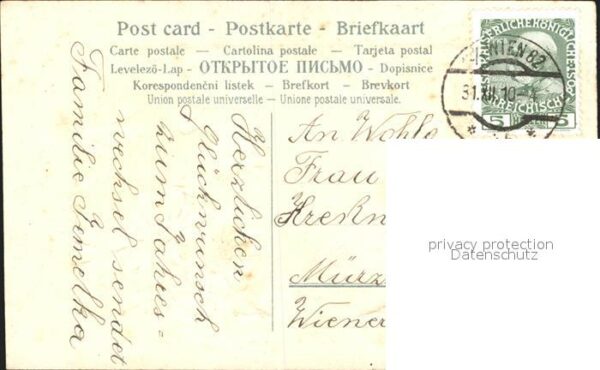 Post card - Postkarte - Briefkaart
Carte postale - Cartolina postale - Tarjeta postal
Levelező-Lap - ОТКРЫТОЕ ПИСЬМО - Dopisnice
Korespondenční listek - Brefkort - Brevkort
Union postale universelle - Unione postale universale.
WIEN 82
31.XII.10
5 5
Herzlichen
Glückwunsch
zum Jahres-
wechsel sendet
Familie Jemelka
An Wohlg
Frau
Mürz
Wiener
privacy protection
Datenschutz